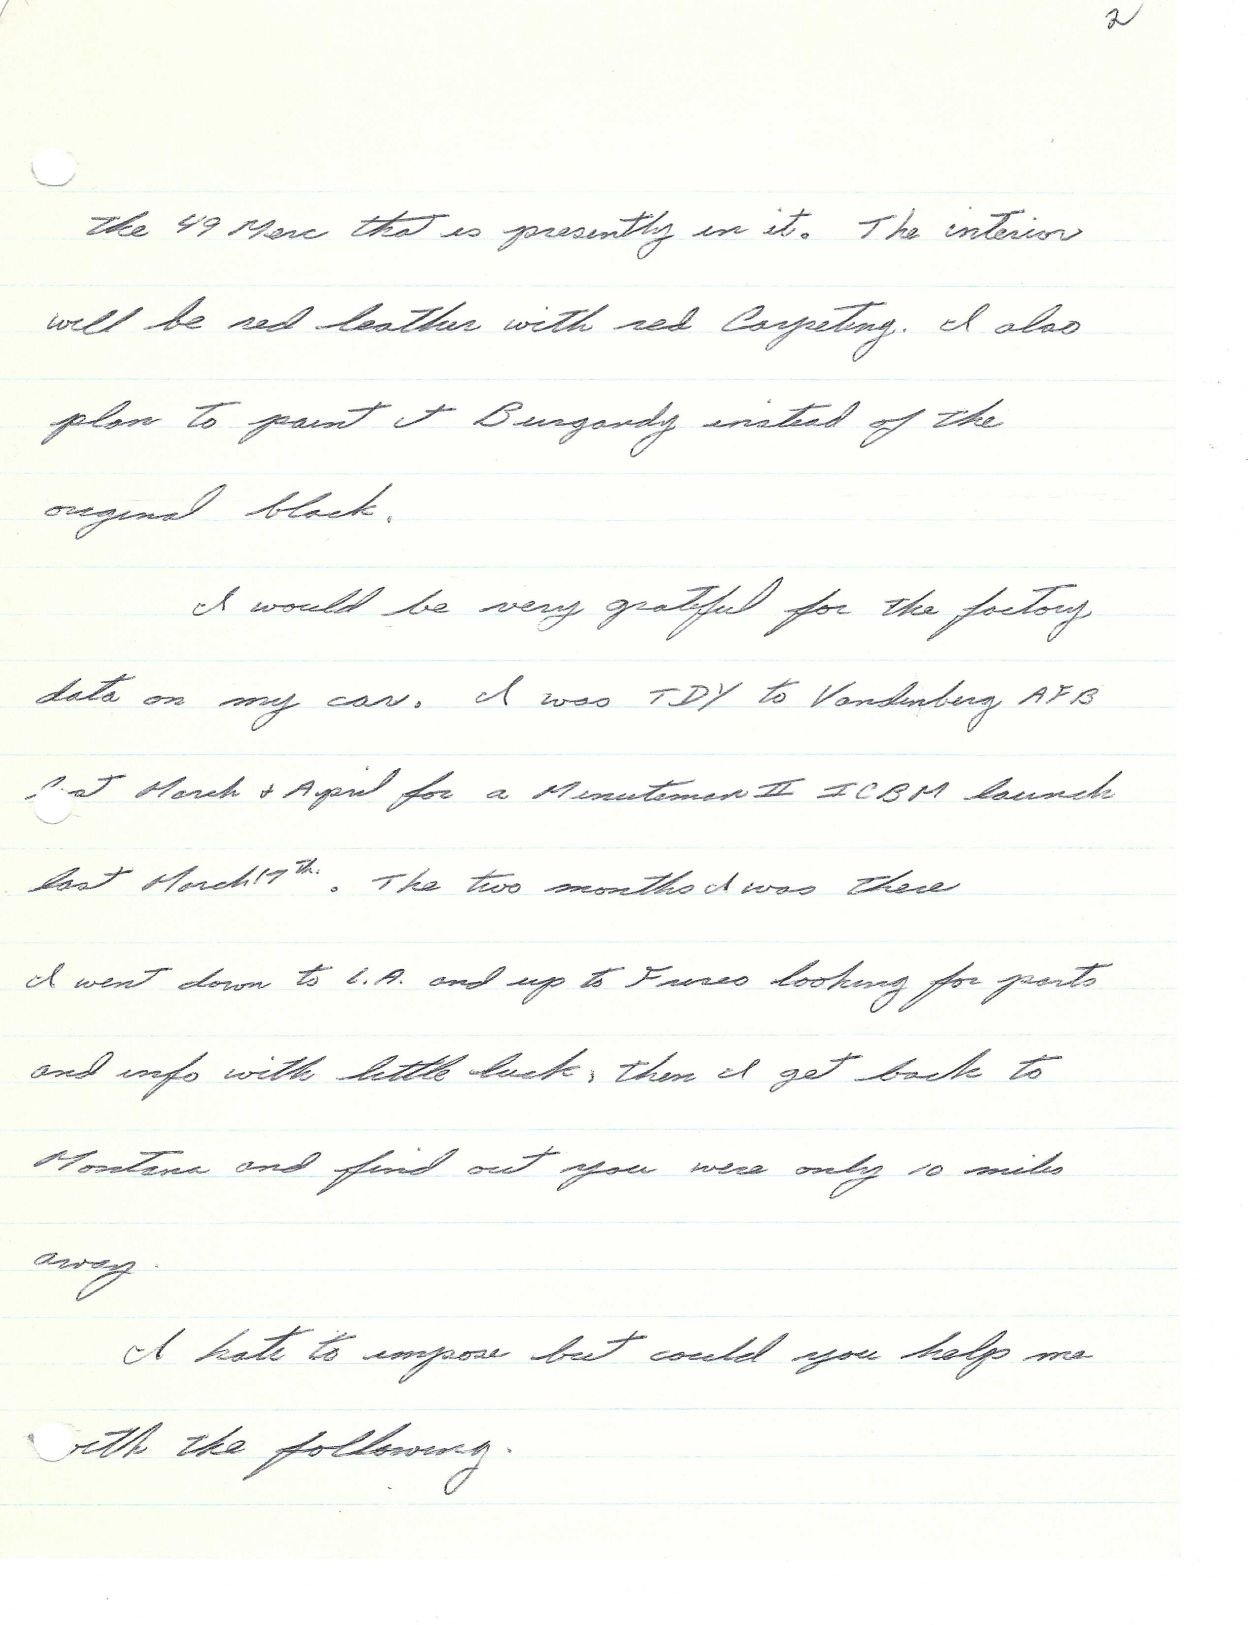 2
the 49 Merc that is presently in it. The interior
will be red leather with red Carpeting. I also
plan to paint it Burgandy instead of the
original black.
I would be very grateful for the factory
data on my car. I was TDY to Vandenberg AFB
last March & April for a Minuteman II ICBM launch
last March 17th. The two months I was there
I went down to L.A. and up to looking for parts
and info with little luck, then I get back to
Montana and find out you were only 10 miles
away.
I hate to impose but could you help me
with the following.